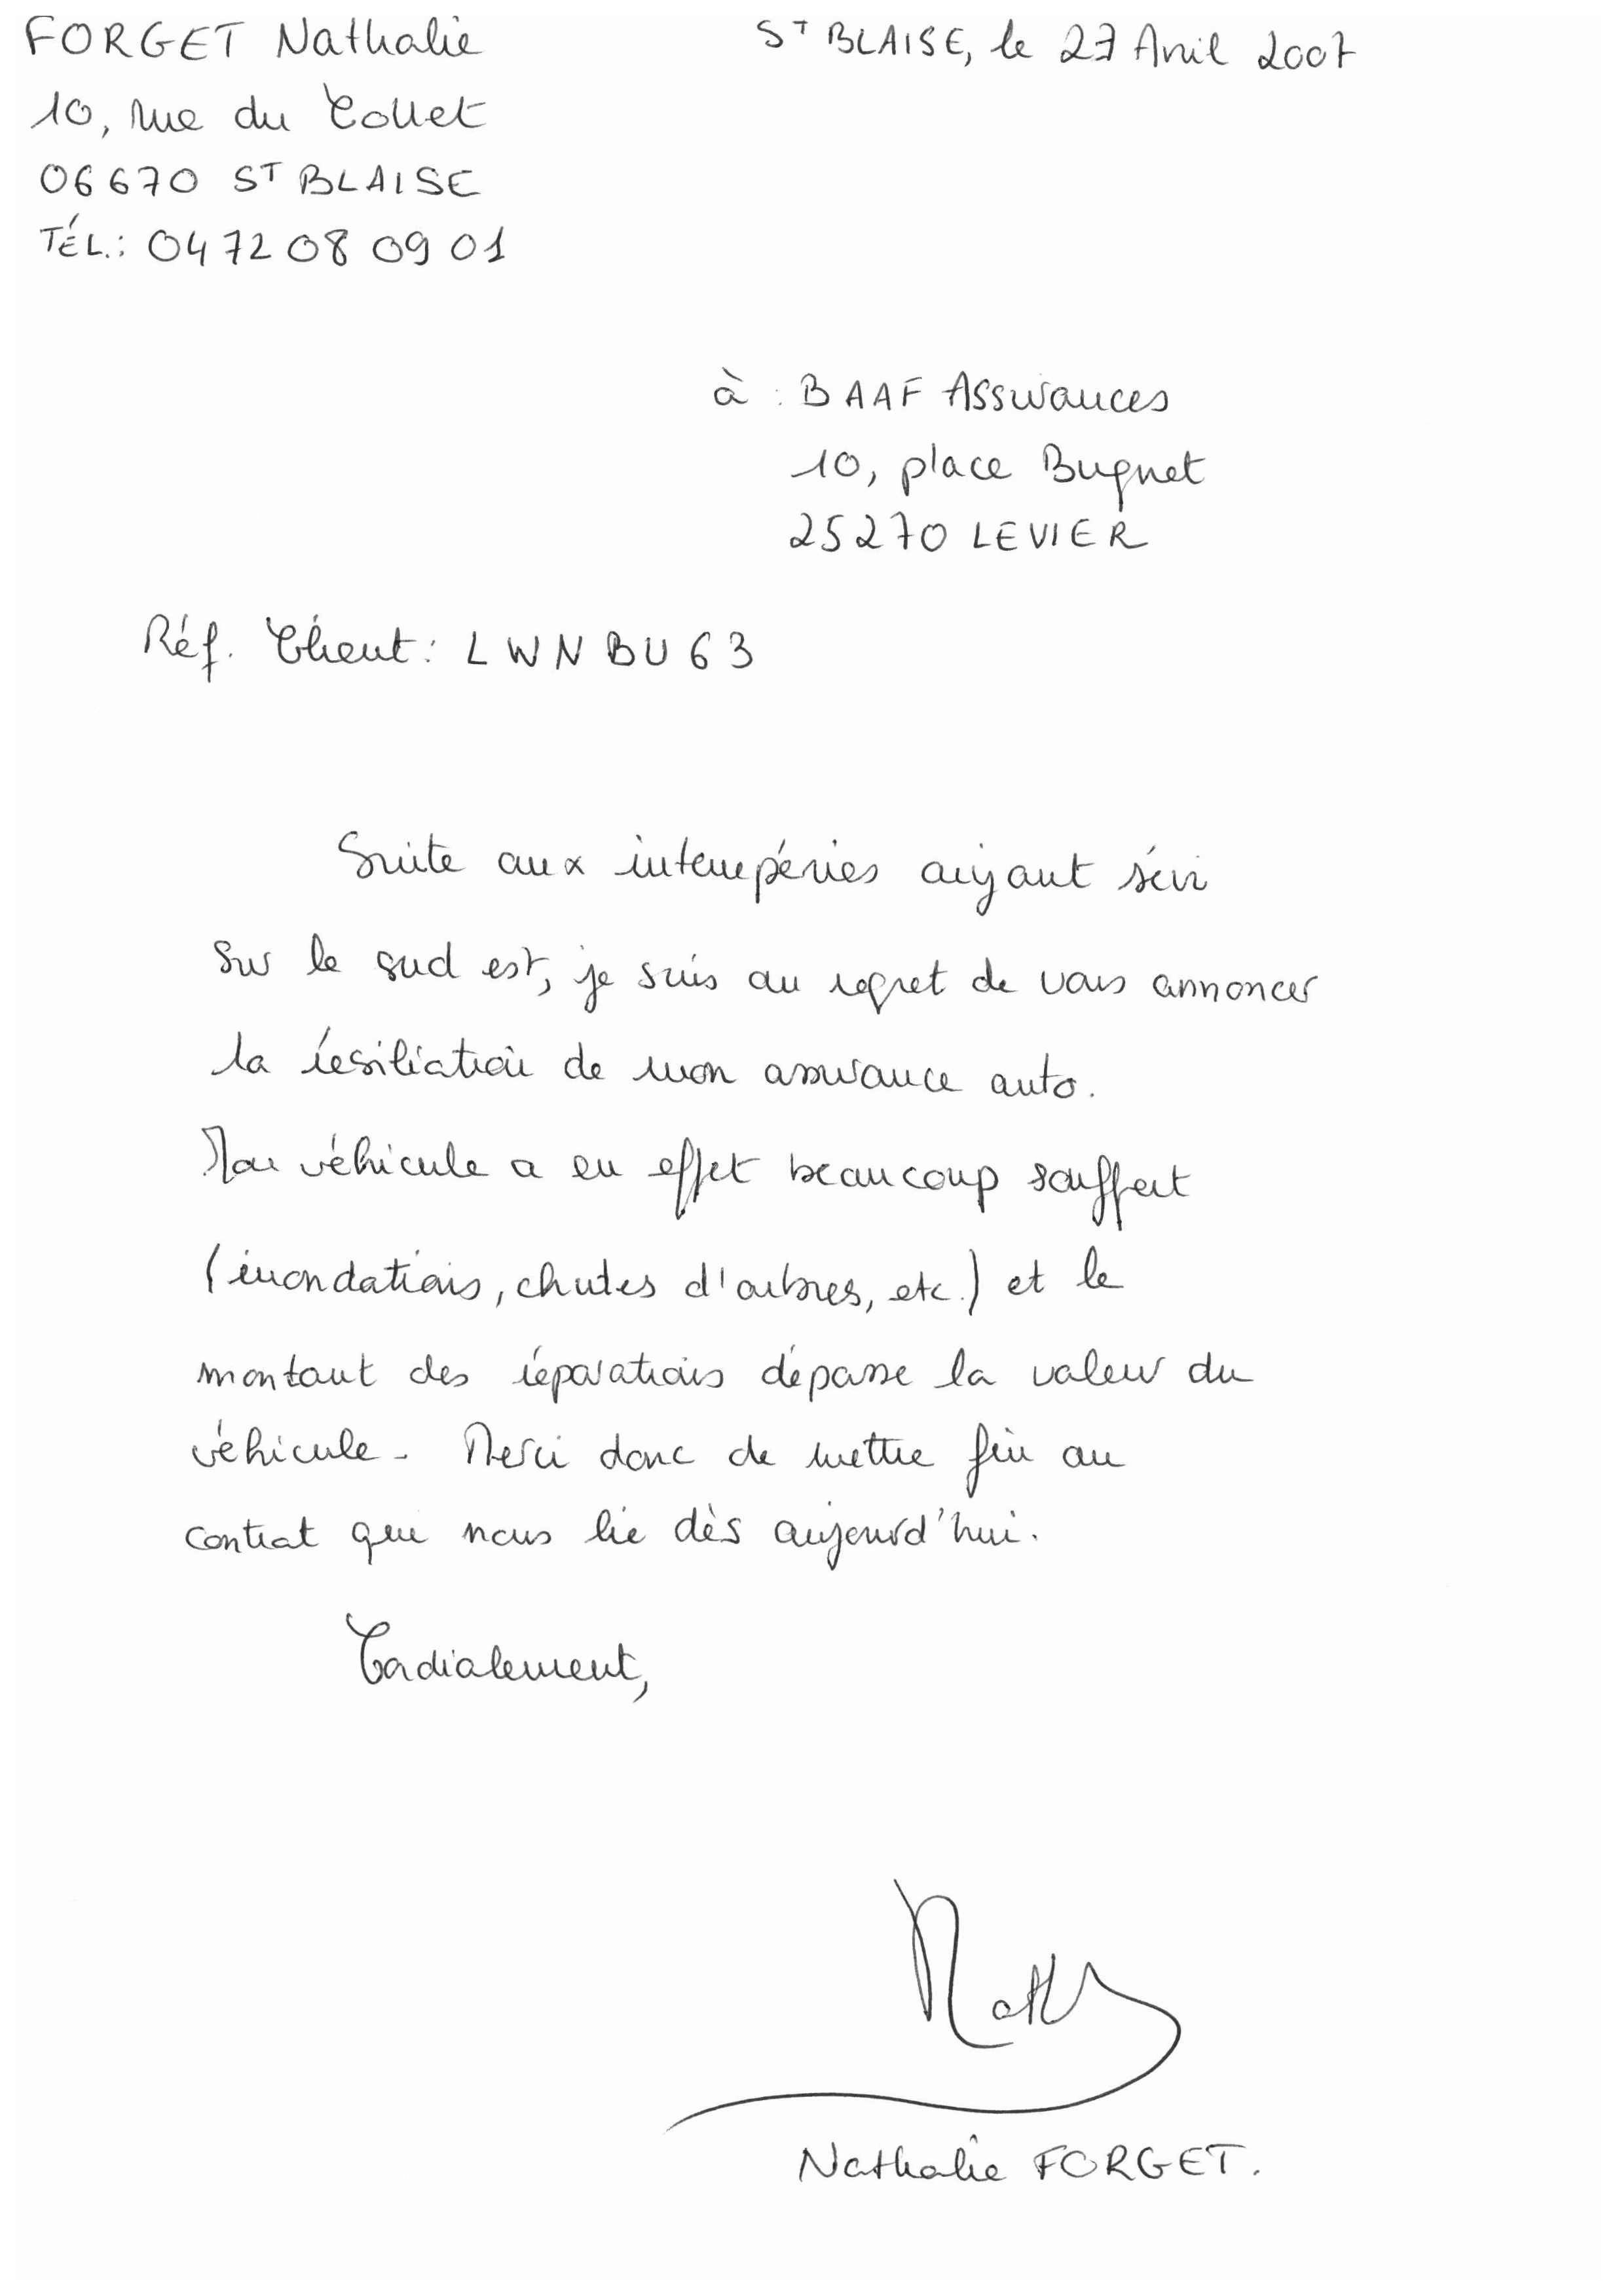 FORGET Nathalie
St BLAISE, le 27 Avril 2007
10, rue du Collet
06670 St BLAISE
TÉL.: 04 72 08 09 01
à : BAAF Assurances
10, place Bugnet
25270 LEVIER
Réf. Client : LWNBU63
Suite aux intempéries aiyant sévi
sur le sud est, je suis au regret de vous annoncer
la résiliation de mon assurance auto.
Mon véhicule a en effet beaucoup souffert
(inondations, chutes d'arbres, etc.) et le
montant des réparations dépasse la valeur du
véhicule. Merci donc de mettre fin au
contrat que nous lie dès aujourd'hui.
Cordialement,
Nath
Nathalie FORGET.